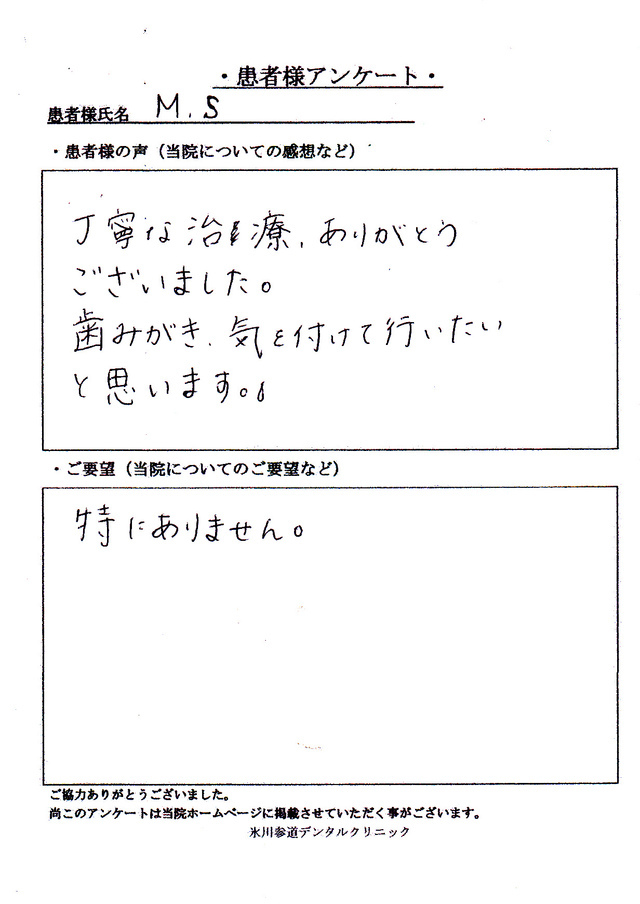 ・患者様アンケート・
患者様氏名 M.S
・患者様の声（当院についての感想など）
丁寧な治療、ありがとう
ございました。
歯みがき、気を付けて行いたい
と思います。
・ご要望（当院についてのご要望など）
特にありません。
ご協力ありがとうございました。
尚このアンケートは当院ホームページに掲載させていただく事がございます。
氷川参道デンタルクリニック